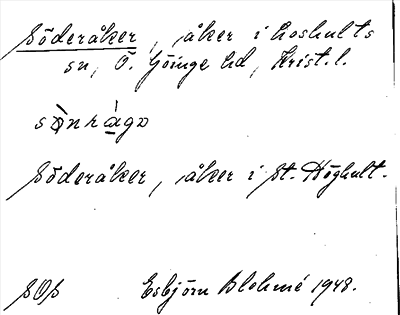 Söderåker, åker i Loshults
sn, Ö. Göinge hd, Krist. l.
Söderåker, åker i St. Höghult.
SOS Esbjörn Blohmé 1948.